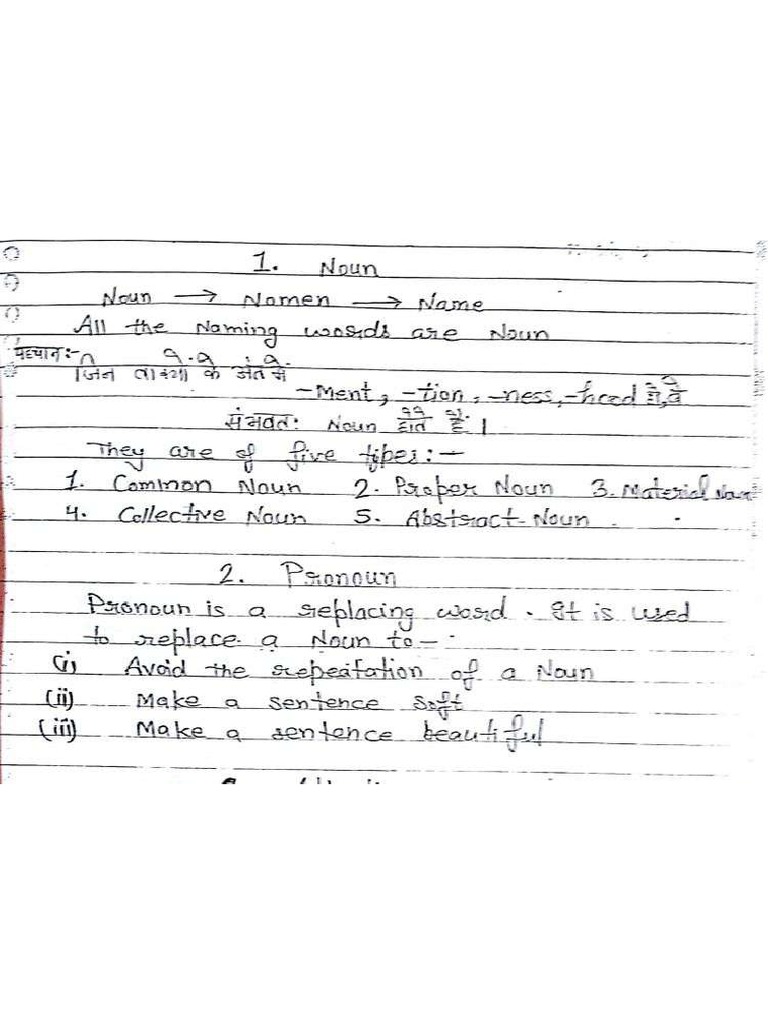 1. Noun
Noun → Nomen → Name
All the Naming words are Noun
पहचान:-
जिन वाक्यों के अंत में
-Ment, -tion, -ness, -hood हो, वे
संभवत: Noun होते हैं।
They are of five tipes:-
1. Common Noun 2. Proper Noun 3. Material Noun
4. Collective Noun 5. Abstract Noun
2. Pronoun
Pronoun is a replacing word. It is used
to replace a Noun to-
(i) Avoid the repeatation of a Noun
(ii) Make a sentence soft
(iii) Make a sentence beautiful